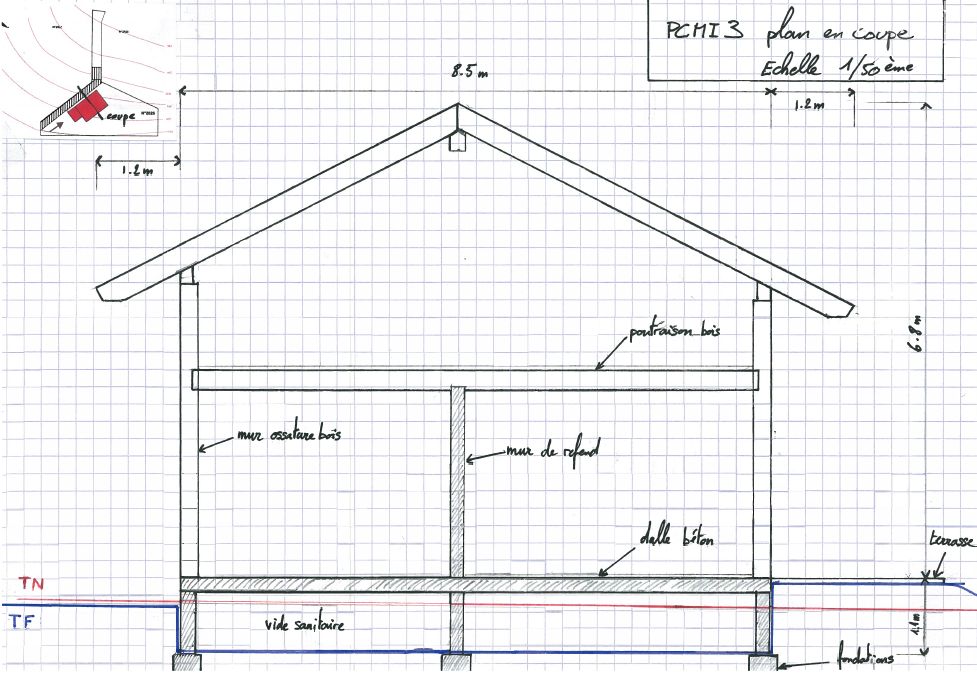 PCMI3 plan en coupe
Echelle 1/50ème
coupe
8.5m
1.2m
1.2m
poutraison bois
6.8m
mur ossature bois
mur de refend
dalle béton
terrasse
TN
TF
vide sanitaire
1.1m
fondations